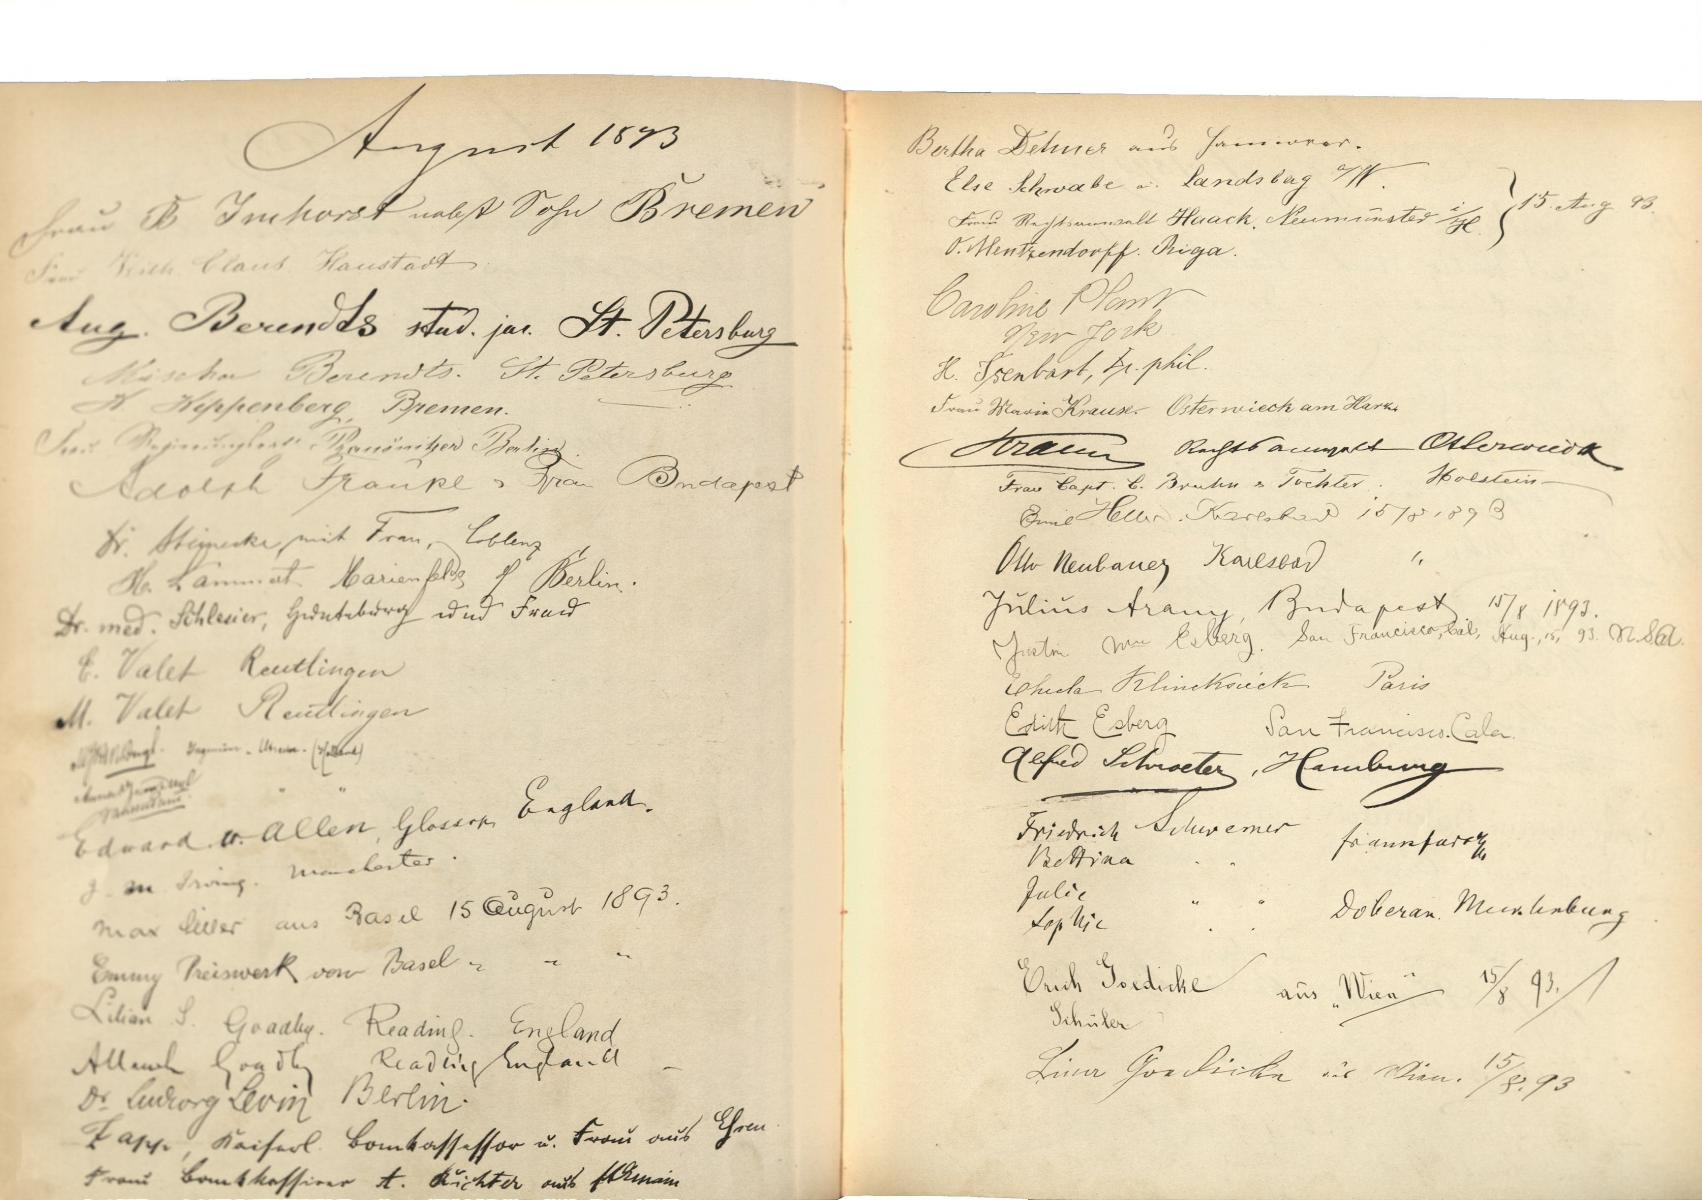 August 1893
Frau B Imhorst nebst Sohn Bremen
Frau Claus Haustadt
Aug. Berendts stud. jur. St. Petersburg
Mischa Berendts. St. Petersburg
Heppenberg, Bremen.
Frau Berlin.
Adolph Frankl & Frau Budapest
Dr. Steinecke, mit Frau, Coblenz
H. Lammert Marienfelde b/ Berlin.
Dr. med. Schlesier, und Frau
E. Valet Reutlingen
M. Valet Reutlingen
" "
Edward W. Allen, Glossop, England.
J. M. Irving. Manchester.
Max Iller aus Basel 15 August 1893.
Emmy Preiswerk von Basel " " "
Lilian S. Goadby. Reading. England
Goadby Reading England
Dr Ludwig Levin Berlin.
Kaiserl. Bankassessor u. Frau aus
Frau Bankkassirer A. Richter aus
Bertha Detmer aus Hannover.
Else Schwabe a. Landsbag a/W.
Frau Rechtsanwalt Huack, Neumünster i/H.
15. Aug 93.
O. Mentzendorff. Riga.
Caroline Plant
New York
H. Isenbart, Dr. phil.
Frau Maria Krause. Osterwieck am Harz.
Rechtsanwalt Osterwieck
Frau Capt. C. Bruhn & Tochter. Holstein
Emil Heller. Karlsbad 15/8 1893
Otto Neubauer Karlsbad "
Julius Arany, Budapest 15/8 1893.
Wm Esberg. San Francisco, Cal, Aug., 15, 93. U.S.A.
Klincksieck Paris
Edith Esberg San Francisco. Cala.
Alfred Schroeter, Hamburg
Friedrich Schwemer Frankfurt a/M
Bettina " "
Julie " " Doberan. Mecklenburg
Sophie " "
Erich Goedicke aus "Wien" 15/8 93.
Schüler
Goedicke aus Wien. 15/8. 93